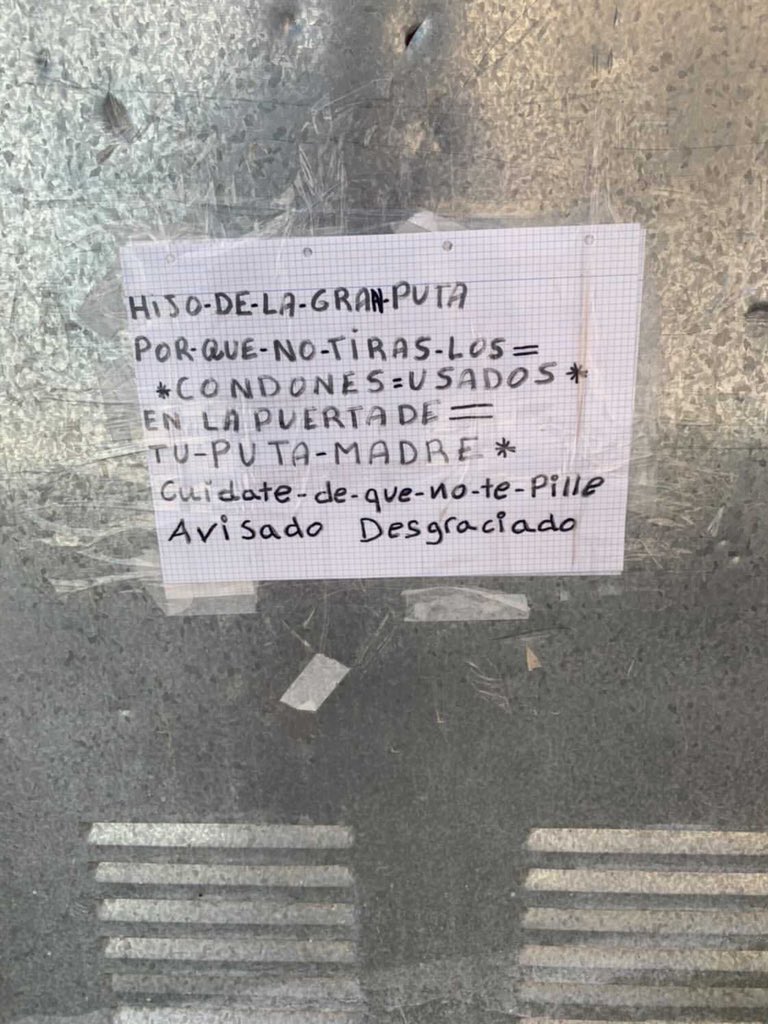 HIJO-DE-LA-GRAN-PUTA
POR-QUE-NO-TIRAS-LOS=
*CONDONES=USADOS*
EN LA PUERTA DE=
TU-PUTA-MADRE*
Cuidate-de-que-no-te-Pille
Avisado Desgraciado